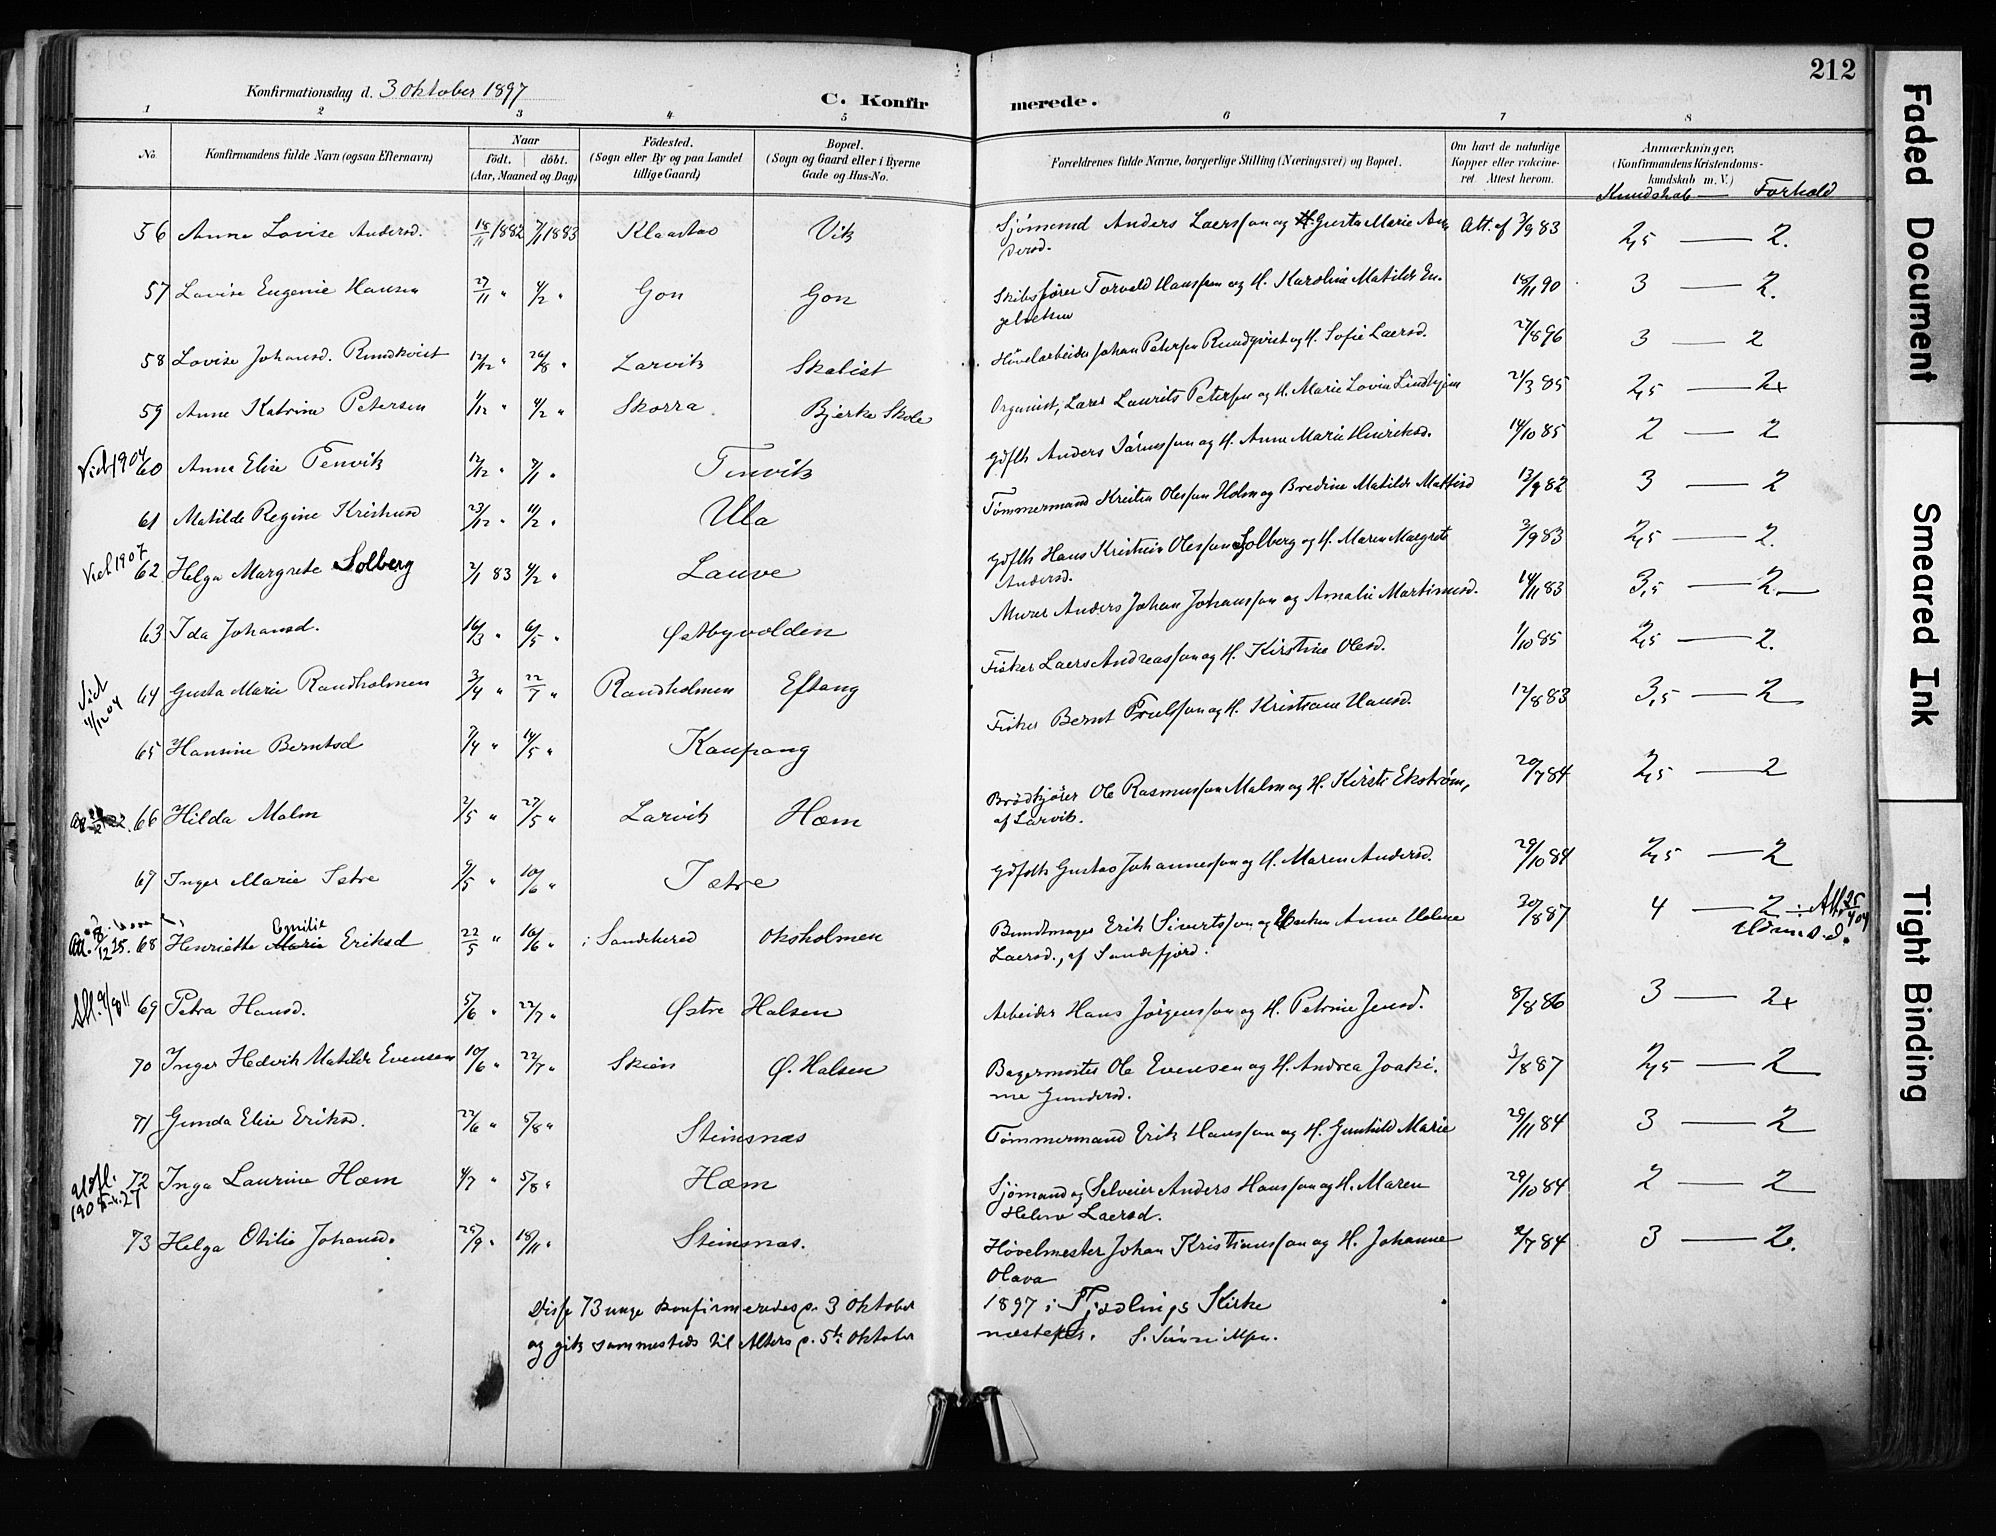 212
Konfirmationsdag d. 3 Oktober 1897
C. Konfir merede.
1 2 3 4 5 6 7 8
No. Konfirmandens fulde Navn (ogsaa Efternavn) Naar født. døbt. (Aar, Maaned og Dag) Fødested. (Sogn eller By og paa Landet tillige Gaard) Bopæl. (Sogn og Gaard eller i Byerne Gade og Hus-No. Forældrenes fulde Navne, borgerlige Stilling (Næringsvei) og Bopæl. Om havt de naturlige Kopper eller vakcineret. Attest herom. Anmærkninger, (Konfirmandens Kristendomskundskab m. V.)
Kundskab — Forhold
56 Anna Lovise Andersd. 18/11 1882 7/1 1883 Klaastad Vik Sjømand Anders Laerssøn og H. Gusta Marie An
dersd. Att. af 3/9 83 2,5 — 2.
57 Lovise Eugenie Hansen 27/11 " 4/2 " Gon Gon Skibsfører Torvald Hanssen og H. Karoline Matilde En-
gelsen 18/11 90 3 — 2.
58 Lovise Johansd. Rundkvist 12/12 " 26/8 " Larvik Skalist Høvelarbeider Johan Petersen Rundqvist og H. Sofie Laersd. 27/8 96 3 — 2
59 Anne Katrine Petersen 1/12 " 4/2 " Skorra Bjerke Skole Organist, Lærer Laurits Petersen og H. Marie Lovise Lindhjem 21/3 85 2,5 — 2+
Viet 1904 60 Anna Elise Tenvik 12/12 " 7/1 " Tenvik Gdfth Anders Sørenssøn og H. Anne Marie Henriksd. 14/10 85 2 — 2
61 Matilde Regine Kristensd 23/12 " 11/2 " Ula Tømmermand Kristen Olessøn Holm og Bredine Matilde Mathisd 13/9 82 3 — 2
Viet 1907 62 Helga Margrete Solberg 2/1 83 4/2 " Lauve Gdfth Hans Kristian Olessøn Solberg og H. Maren Margrete
Andersd. 3/9 83 2,5 — 2.
63 Ida Johansd. 16/3 " 6/5 " Østbyvolden Murer Anders Johan Johanssøn og Amalie Martinusd. 14/11 83 3,5 — 2.
Viet 4/12 04 64 Gusta Marie Randholmen 3/4 " 22/7 " Randholmen Eftang Fisker Laers Andreassøn og H. Kirstine Olesd. 1/10 85 2,5 — 2.
65 Hansine Berntsd 7/4 " 14/5 " Kaupang Fisker Bernt Poulssøn og H. Kristiane Hansd. 12/8 83 3,5 — 2
66 Hilda Malm 2/5 " 27/5 " Larvik Hæm Brødkjører Ole Rasmussøn Malm og H. Kirsti Ekstrøm,
af Larvik. 20/7 84 2,5 — 2
67 Inger Marie Istre 9/5 " 10/6 " Istre Gdfdth Gustav Johannessøn og H. Maren Andersd. 29/10 84 2,5 — 2
Att. 8/12 25. 68 Henriette Marie Emilie Eriksd 22/5 " 16/6 " i Sandehered Oksholmen Bundtmager Erik Sivertssøn og Enken Anne Helene
Laersd., af Sandefjord. 30/8 87 4 — 2
Att. 9/8 11 69 Petra Hansd. 5/6 " 22/7 " Østre Halsen Arbeider Hans Jörgenssøn og H. Petrine Jensd. 8/8 86 3 — 2+
70 Inger Hedvik Matilde Evensen 10/6 " 22/7 " Skien Ø. Halsen Bagermester Ole Evensen og H. Andrea Joaki-
me Gundersd. 3/8 87 2,5 — 2
71 Gunda Elise Eriksd. 22/6 " 5/8 " Steinsnæs Tømmermand Erik Hanssøn og H. Gunhild Marie 29/11 84 3 — 2
72 Inga Laurine Hæm 4/7 " 5/8 " Hæm Sjømand og Selveier Anders Hanssøn og H. Maren
Helene Laersd. 29/10 84 2 — 2
73 Helga Otilie Johansd. 25/9 " 18/11 " Steinsnæs. Høvelmester Johan Kristianssøn og H. Johanne
Olava 2/7 84 3 — 2.
Disse 73 unge konfirmeredes p. 3 Oktober 1897 i Tjødlings Kirke
og gik sammesteds til Alters p. 5te Oktober næstefter.
Faded Document
Smeared Ink
Tight Binding